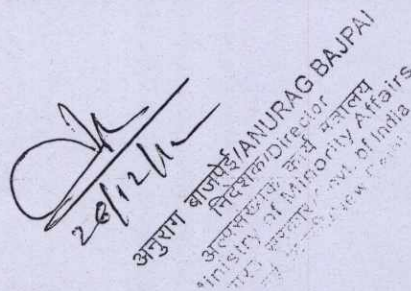 28/12/12
अनुराग बाजपेई/ANURAG BAJPAI
निदेशक/Director
अल्पसंख्यक कार्य मंत्रालय
Ministry of Minority Affairs
भारत सरकार/Govt. of India
New Delhi